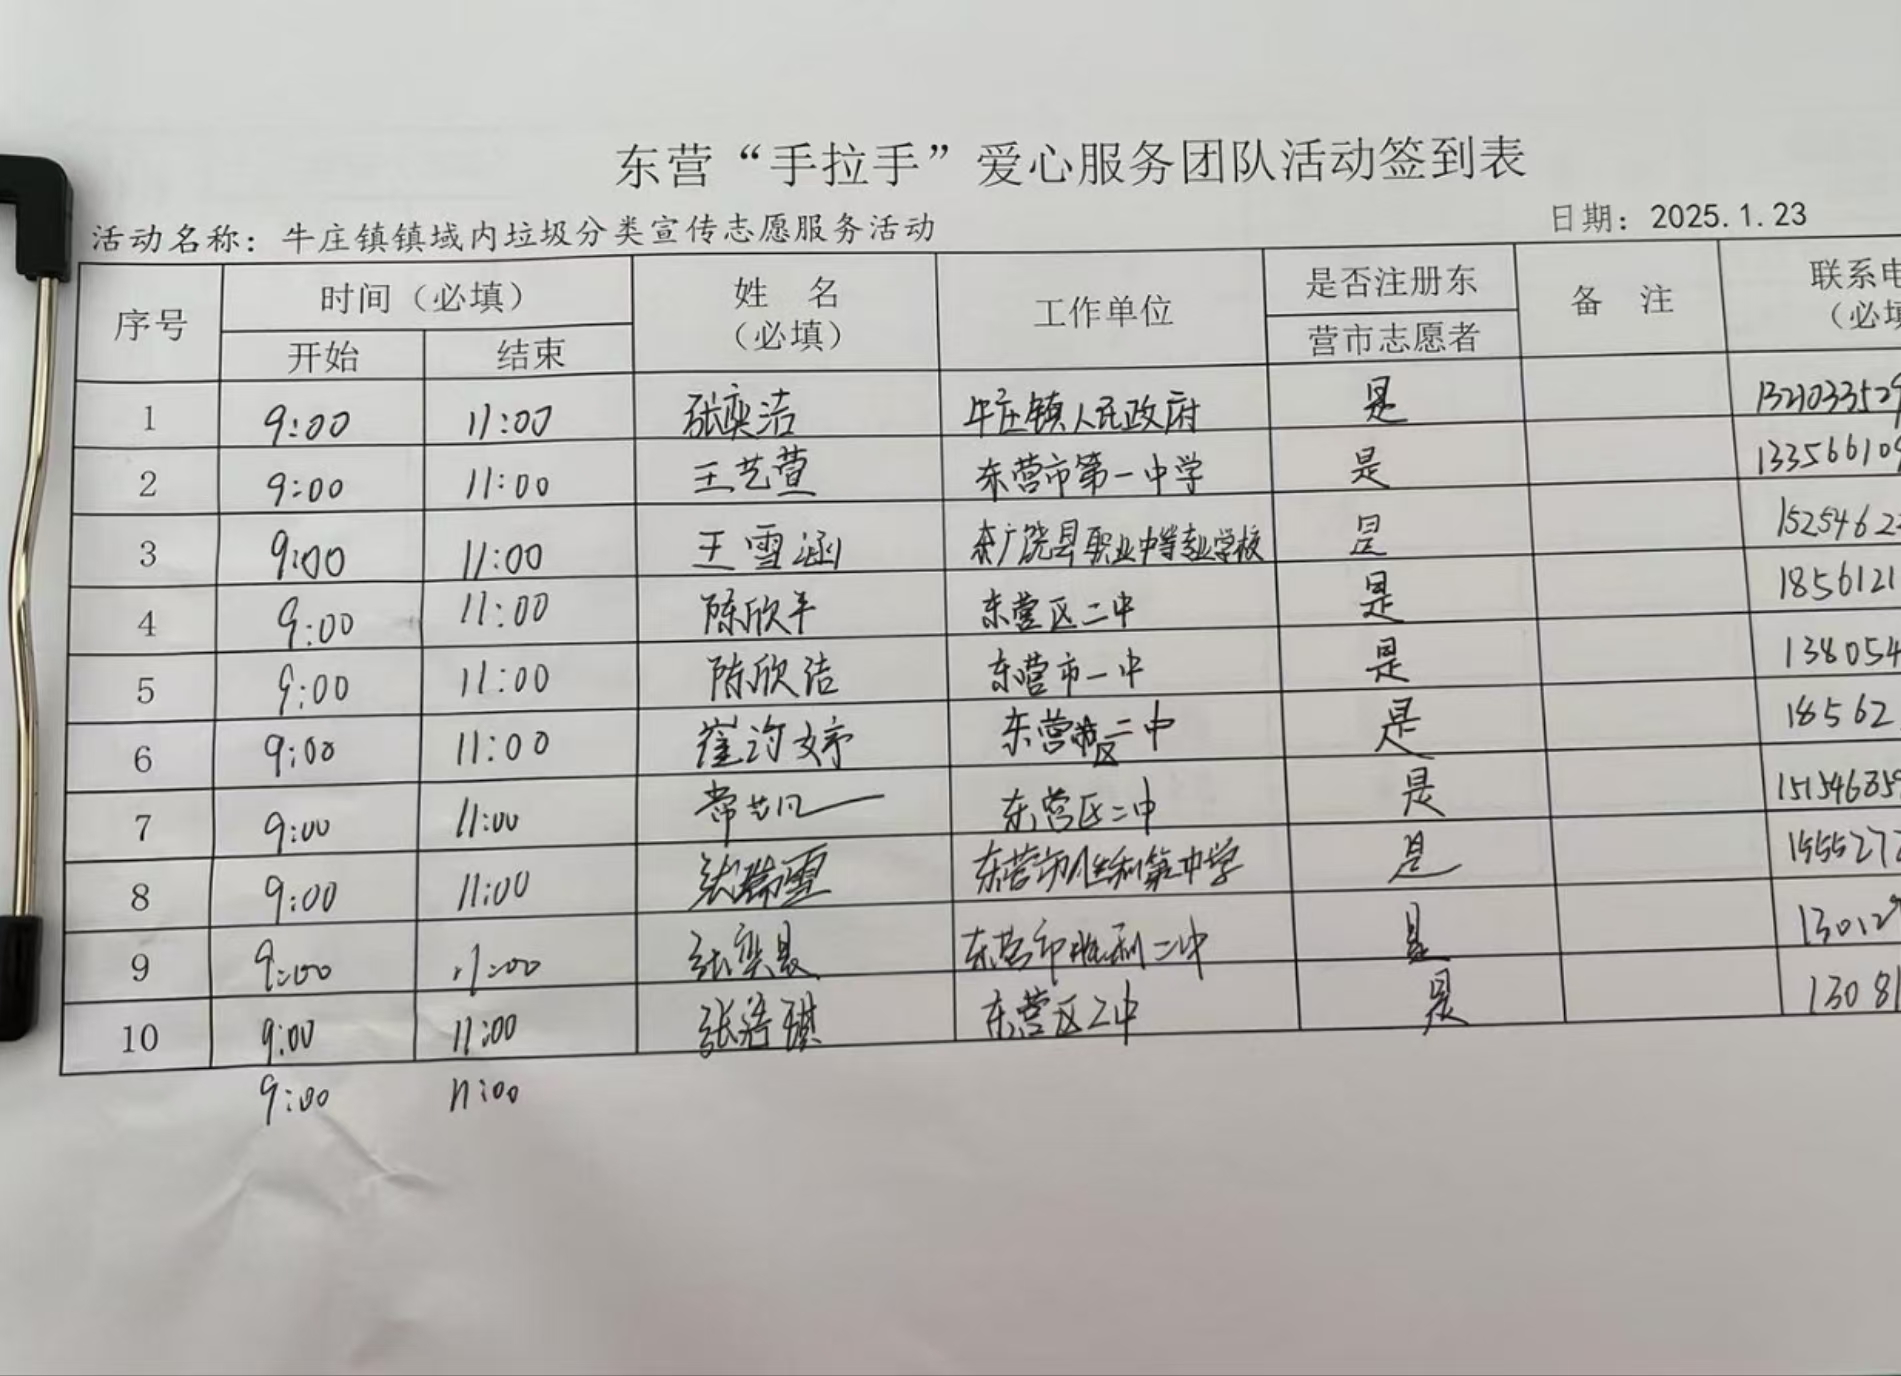 东营“手拉手”爱心服务团队活动签到表
活动名称：牛庄镇镇域内垃圾分类宣传志愿服务活动 日期：2025.1.23
序号 时间（必填） 姓 名（必填） 工作单位 是否注册东营市志愿者 备 注 联系电（必填
开始 结束
1 9:00 11:00 张奕洁 牛庄镇人民政府 是 1321033529
2 9:00 11:00 王艺萱 东营市第一中学 是 133566109
3 9:00 11:00 王雪涵 广饶县职业中等专业学校 是 15254623
4 9:00 11:00 陈欣平 东营区二中 是 1856121
5 9:00 11:00 陈欣洁 东营市一中 是 138054
6 9:00 11:00 崔 婷 东营区二中 是 18562
7 9:00 11:00 常艺凡 东营区二中 是 151546859
8 9:00 11:00 张瑞雪 东营市胜利第 中学 是 1555272
9 9:00 11:00 张奕晨 东营市胜利二中 是 13012
10 9:00 11:00 张 琪 东营区二中 是 13081
9:00 11:00